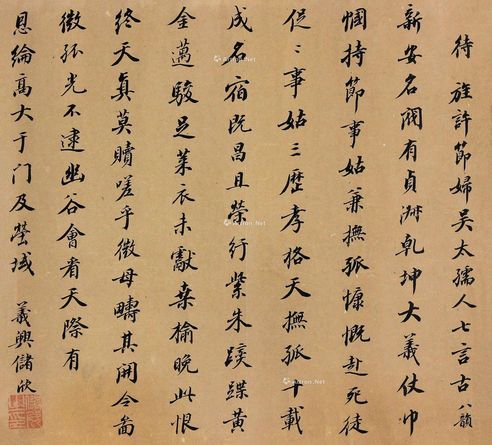 待旌許節婦吳太孺人七言古八韻
新安名閥有貞淋乾坤大義仗巾
幗持節事姑兼撫孤慷慨赴死徒
促〻事姑三歷孝格天撫孤千載
成名宿既昌且榮行紫朱蹊蹀黃
金邁駿足萊衣未獻桒榆晚此恨
終天真莫贖嗟乎微母疇其開今啚
微孤光不逮幽谷會看天際有
恩綸高大于门及塋域 義興儲欣